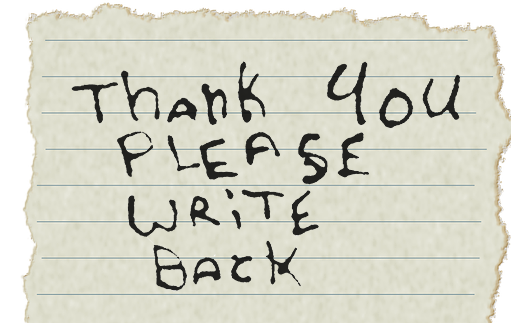 Thank YOU
PLEASE
WRiTE
BACK